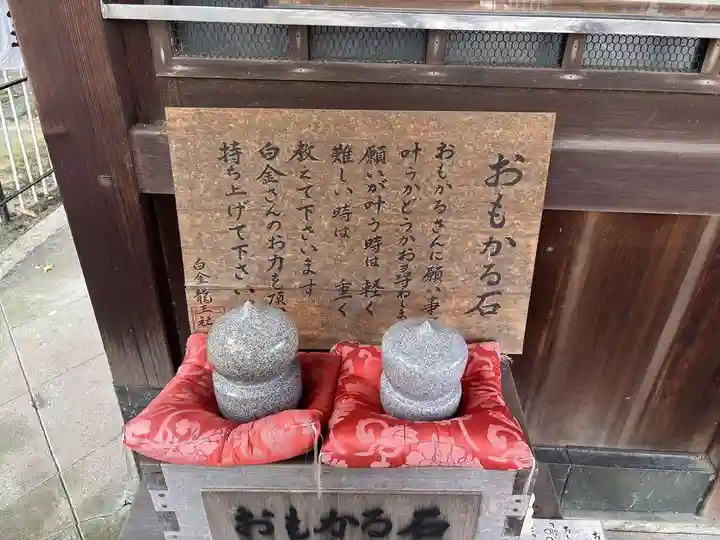 おもかる石
おもかるさんに願い事
叶うかどうかお尋ねしま
願いが叶う時は 軽く
難しい時は 重く
教えて下さいます。
白金さんのお力を頂
持ち上げて下さい
白金龍王社
おもかる石